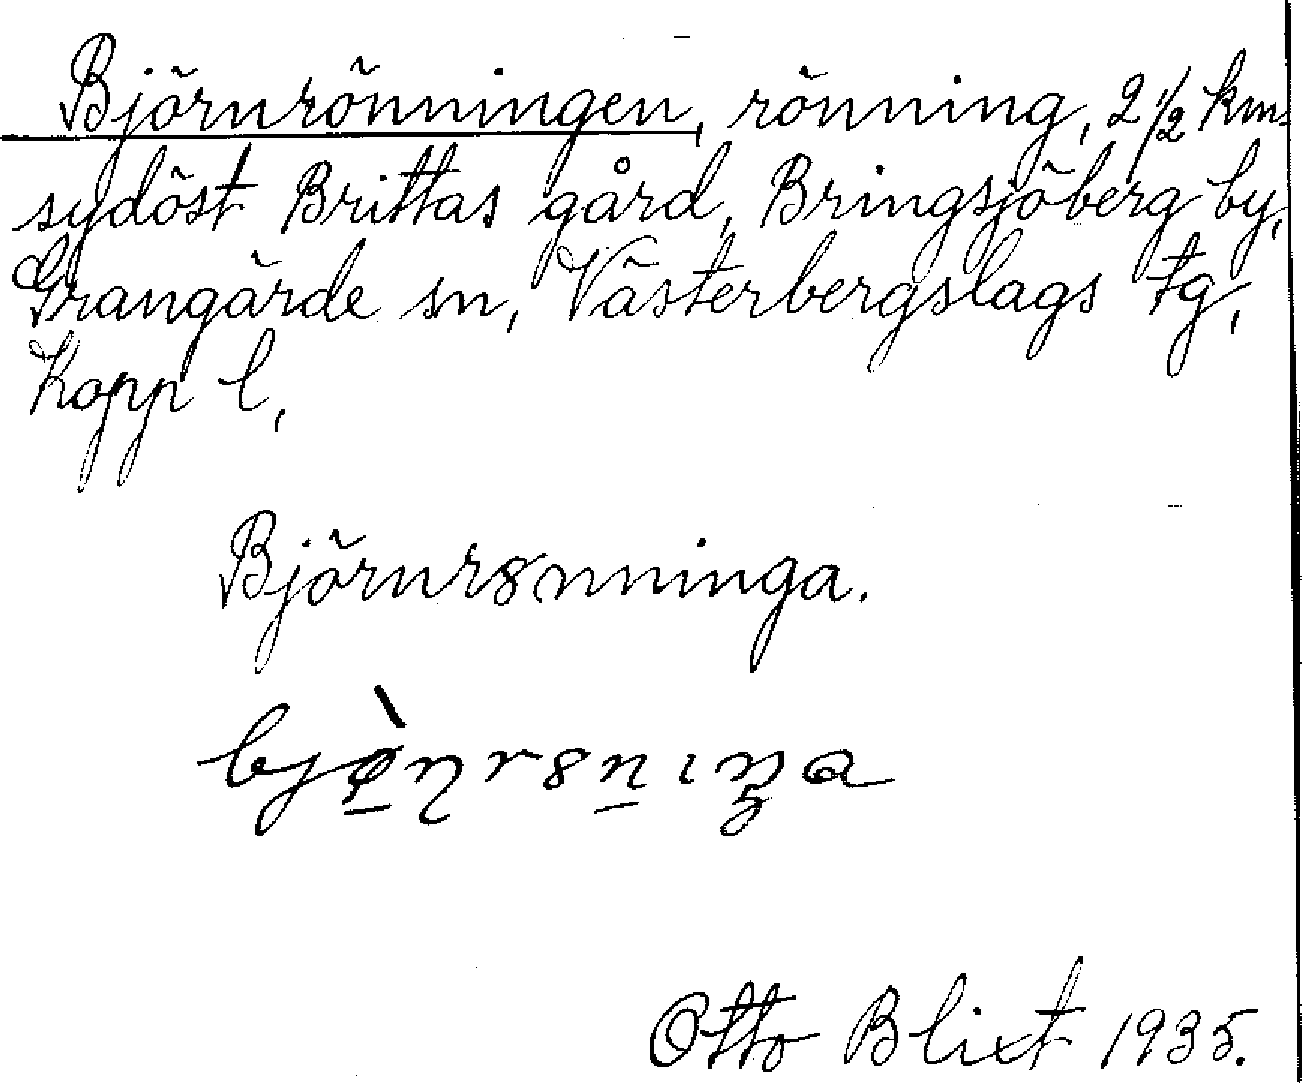 Björnrönningen, rönning, 2 1/2 km
sydöst Brittas gård, Bringsjöberg by,
Grangärde sn, Västerbergslags fg,
Kopp l,
Björnr8nninga.
Otto Blixt 1935.